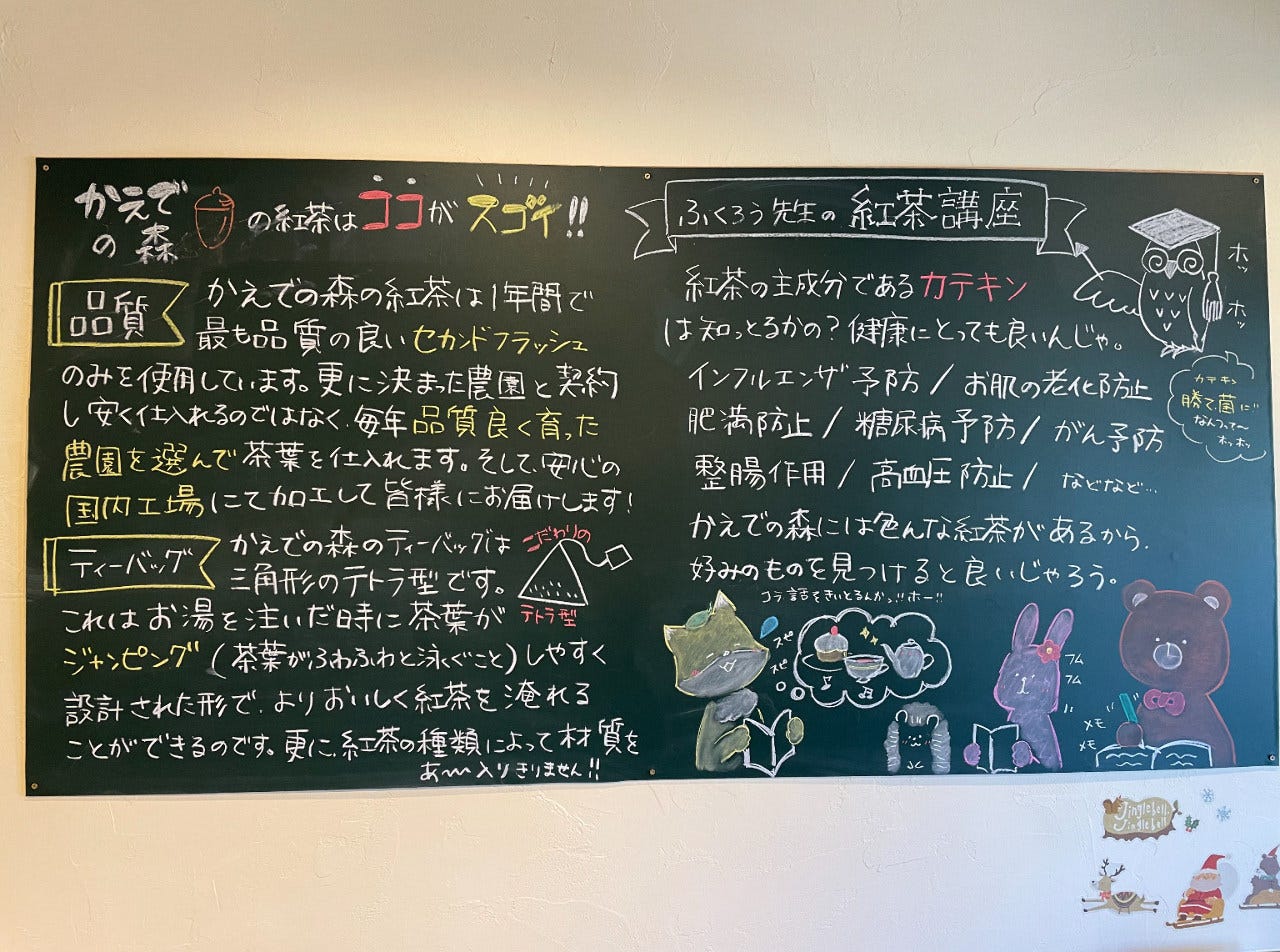 かえで
の森
の紅茶は ココ が スゴイ!!
品質
かえでの森の紅茶は1年間で
最も品質の良いセカンドフラッシュ
のみを使用しています。更に決まった農園と契約
し安く仕入れるのではなく、毎年品質良く育った
農園を選んで茶葉を仕入れます。そして、安心の
国内工場にて加工して皆様にお届けします!
ティーバッグ
かえでの森のティーバッグは
三角形のテトラ型です。
こだわりの
テトラ型
これはお湯を注いだ時に茶葉が
ジャンピング(茶葉がふわふわと泳ぐこと)しやすく
設計された形で、よりおいしく紅茶を淹れる
ことができるのです。更に、紅茶の種類によって材質を
あ〜入りきりません!!
ふくろう先生の 紅茶講座
ホッ
ホッ
紅茶の主成分であるカテキン
は知っとるかの?健康にとっても良いんじゃ。
インフルエンザ予防/お肌の老化防止
肥満防止/糖尿病予防/がん予防
整腸作用/高血圧防止/などなど…
カテキン
勝て菌に
なんつって〜
ホッホッ
かえでの森には色んな紅茶があるから、
好みのものを見つけると良いじゃろう。
コラ話をきいとるんかっ!!ホー!!
スピ
スピ
フム
フム
メモ
メモ
Jinglebell
Jinglebell